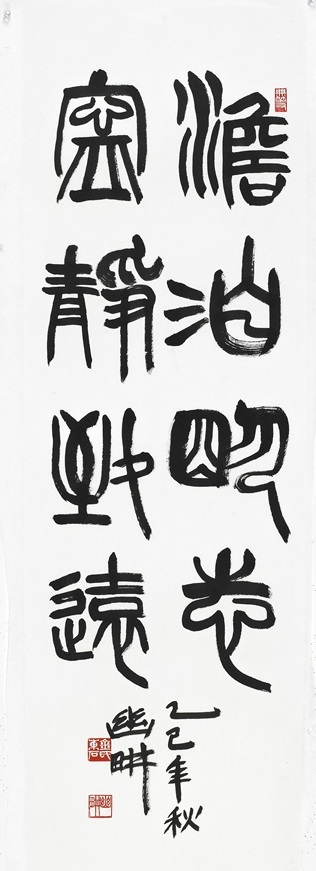 澹泊明志
寍靜致遠
乙巳年秋
幽畊